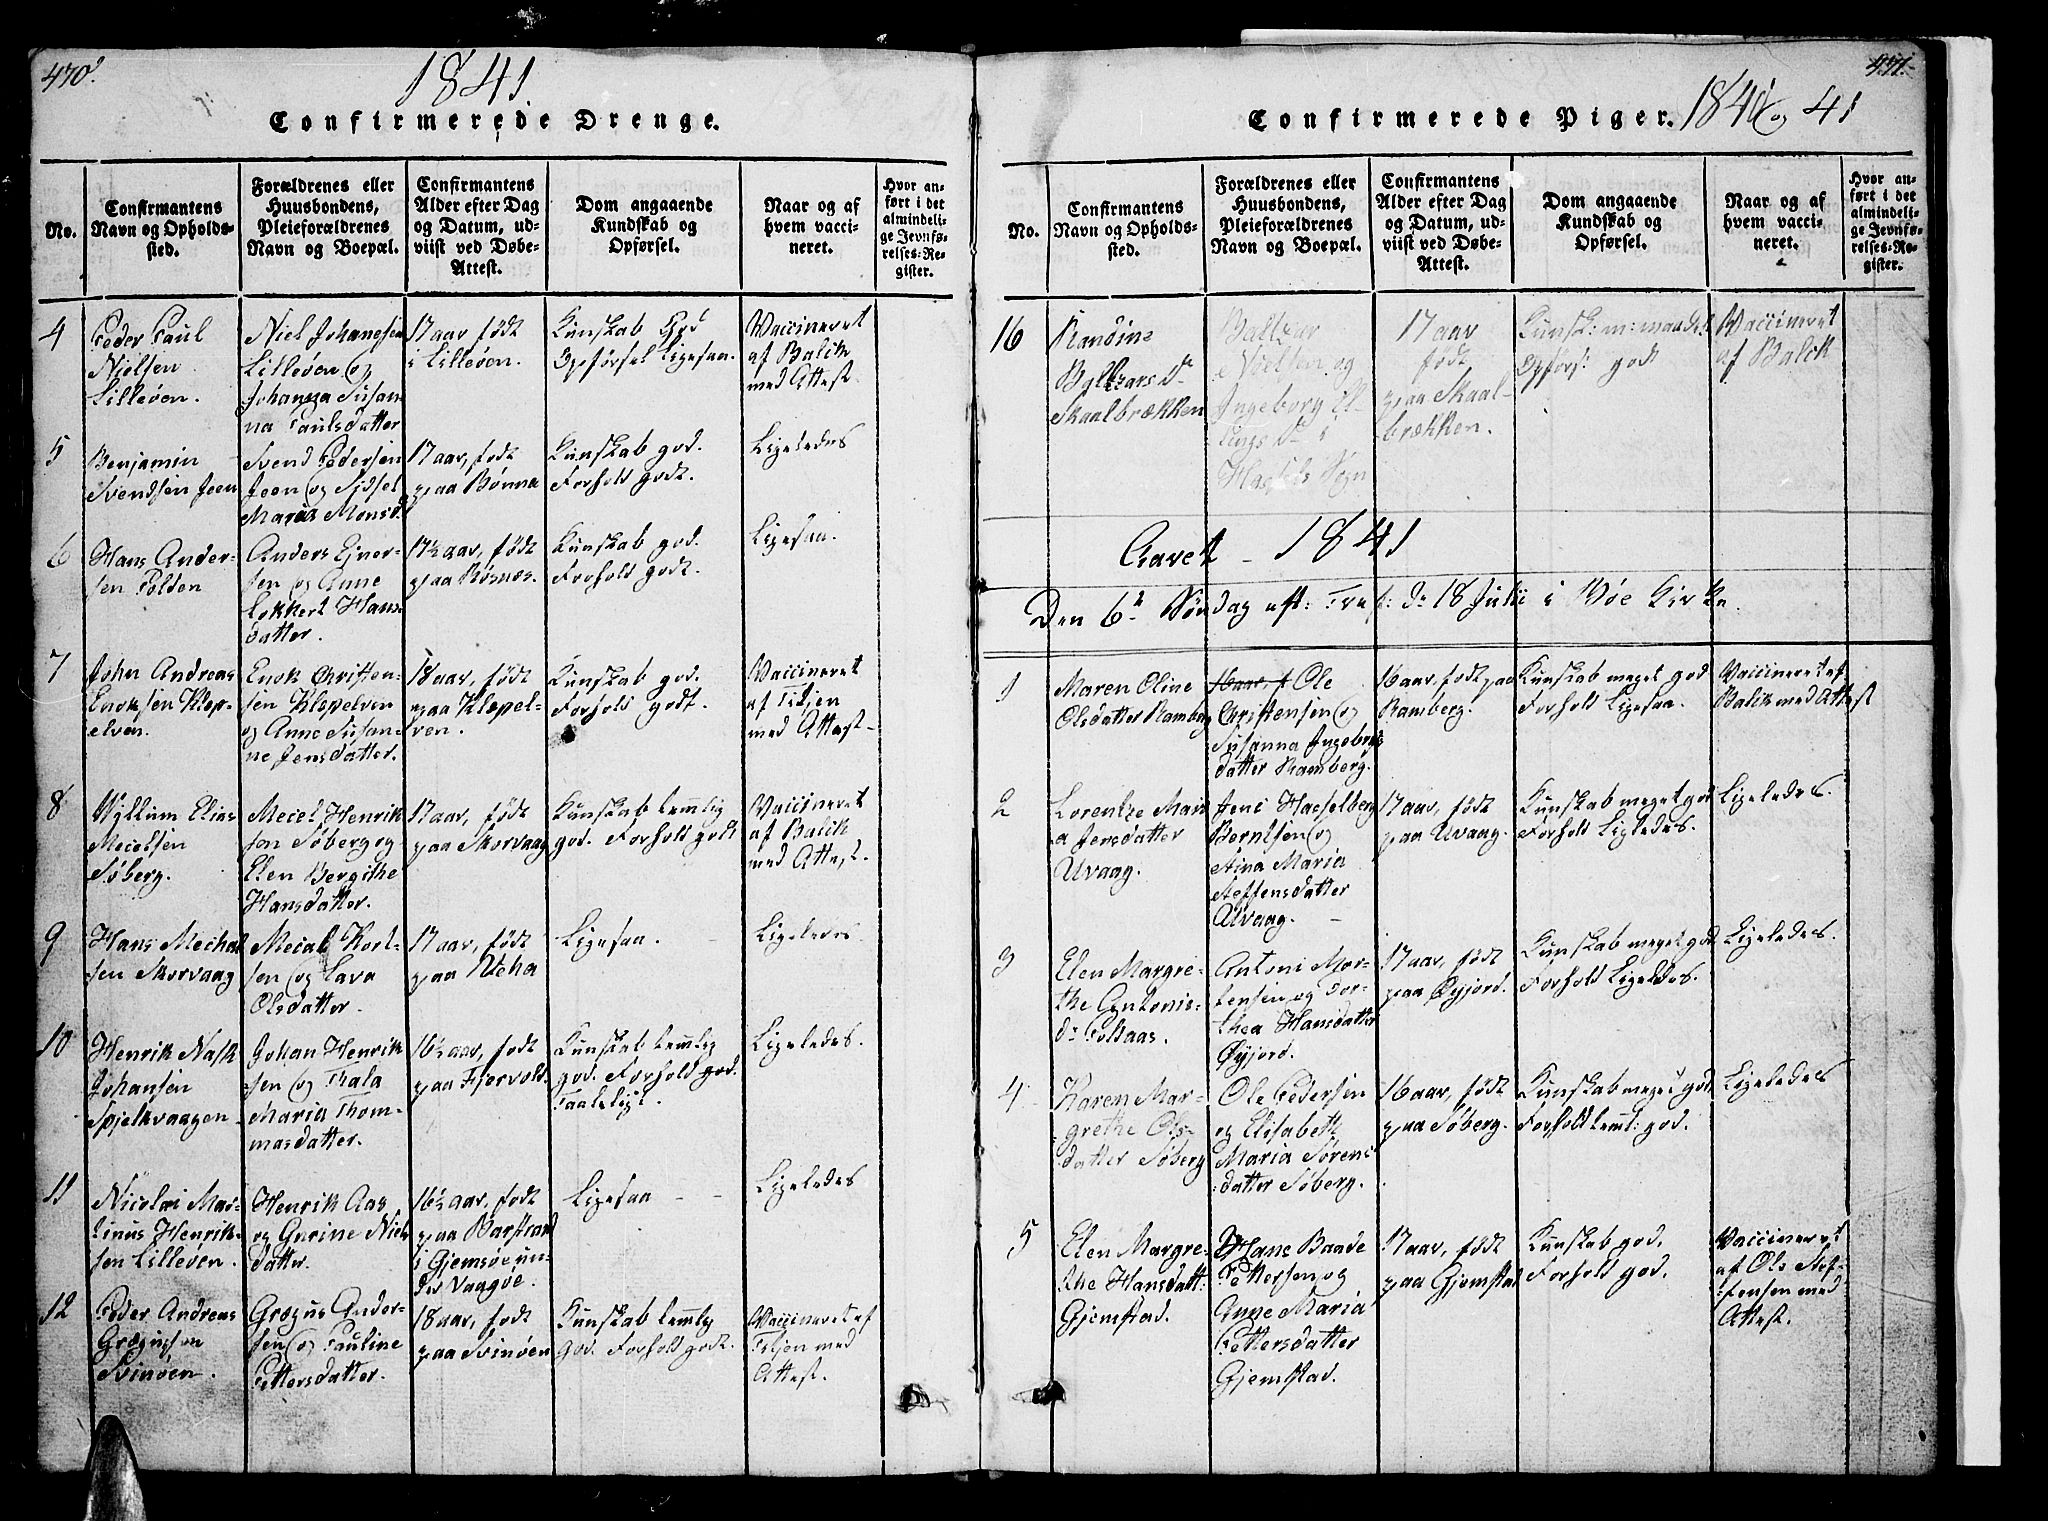 470.
1841
Confirmerede Drenge.
No.
Confirmantens
Navn og Opholds-
sted.
Forældrenes eller
Huusbondens,
Pleieforældrenes
Navn og Boepæl.
Confirmantens
Alder efter Dag
og Datum, ud-
viist ved Døbe-
Attest.
Dom angaaende
Kundskab og
Opførsel.
Naar og af
hvem vacci-
neret.
Hvor an-
ført i det
almindeli-
ge Jevnfø-
relses-Re-
gister.
4
Peder Paul
Nielsen
Lilleøen.
Niel Johanesen
Lilleøen og
Johanna Susan
na Paulsdatter
17 aar født
i Lilleøen.
Kunskab God
Opførsel Ligesaa.
Vaccineret
af Balik
med Attest.
5
Benjamin
Svendsen Jeen
Svend Pedersen
Jeen og Sidsel
Maria Monsd.
17 aar, født
paa Bønna
Kunskab god.
Forhold godt.
Ligeledes
6
Hans Ander-
sen Polden
Anders Ejner-
sen og Anne
Lokkert Hans
datter.
17½ aar, født
paa Røsnes.
Kunskab god.
Forhold godt.
Ligesaa.
7
John Andreas
Enoksen Klep-
elven.
Enok Christen-
sen Klepelven
og Anne Susan-
ne Jensdatter.
18 aar, født
paa Klepel-
ven.
Kunskab god.
Forhold godt.
Vaccineret
af
med Attest-
8
Vyllum Elias
Mecelsen
Søberg.
Mecel Henrik
sen Søberg og
Elen Bergithe
Hansdatter.
17 aar, født
paa Skorvaag
Kunskab temmlig
god. Forhold godt
Vaccineret
af Balik
med Attest.
9
Hans Mechal
sen Skorvaag
Mecal Kort-
sen og Lava
Olsdatter.
17 aar, født
paa
Ligesaa.
Ligeledes
10
Henrik Nask
Johansen
Spjelkvaagen
Johan Henrik
sen og Tala
Maria Thom-
masdatter.
16½ aar, født
paa Fjærvold
Kunskab temmlig
god. Forhold god.
Taaleligt.
Ligeledes.
11
Nicolai Mar-
tinus Henrik-
sen Lilleøen.
Henrik Aas
og Gurine Niels
datter.
16½ aar, født
paa Barstrand
i Gjemsøe un-
der Vaagøe.
Ligesaa
Ligeledes
12
Peder Andreas
Grægusson
Svinøen.
Grægus Ander-
sen og Pauline
Pettersdatter.
18 aar, født
paa Svinøen
Kunskab temmlig
god. Forhold godt.
Vaccineret af
med
Attest.
471.
Confirmerede Piger. 1840 og 41
No.
Confirmantens
Navn og Opholds-
sted.
Forældrenes eller
Huusbondens,
Pleieforældrenes
Navn og Boepæl.
Confirmantens
Alder efter Dag
og Datum, ud-
viist ved Døbe-
Attest.
Dom angaaende
Kundskab og
Opførsel.
Naar og af
hvem vacci-
neret.
Hvor an-
ført i det
almindeli-
ge Jevnfø-
relses-Re-
gister.
16
Randine
Baltzars Dr
Skaalbrækken
Baltzar
Nielsen og
Ingeborg El-
lings Dr i
Hassels Sogn
17 aar
født
paa Skaal-
brækken.
Kunsk: m: maadel
Opførs: godt
Vaccineret
af Balik
Aaret - 1841
Den 6te Søndag eft: Tref: d: 18 Julii i Bøe Kirke.
1
Maren Oline
Olsdatter Ramberg
16 aar, f Ole
Christensen og
Susanna Ingebrigts
datter Ramberg.
16 aar, født paa
Ramberg.
Kunskab meget god
Forhold Ligesaa.
Vaccineret af
Balik med Attest
2
Lorentze Mari
a Jensdatter
Uvaag.
Jens Hasselberg
Berntsen og
Stina Maria
Steffensdatter
Uvaag.
17 aar, født
paa Uvaag.
Kunskab meget god
Forhold Ligeledes.
Ligeledes.
3
Elen Margre-
the Antonis-
dr Polsaas.
Antoni Mor-
tensen og Dor-
thea Hansdatter
Øyjord.
17 aar, født
paa Øyjord.
Kunskab meget god
Forhold Ligeledes.
Ligeledes.
4
Karen Mar-
grethe Ols-
datter Søberg
Ole Pedersen
og Elisabeth
Maria Sørens
datter Søberg.
16 aar, født
paa Søberg.
Kunskab meget god
Forhold temt: god.
Ligeledes
5
Elen Margre-
the Hansdatt:
Gjemstad.
Hans Baade
Pettersen og
Anne Maria
Pettersdatter
Gjemstad.
17 aar, født
paa Gjemstad
Kunskab god.
Forhold god.
Vaccineret
af Ole Stef-
fensen med
Attest.